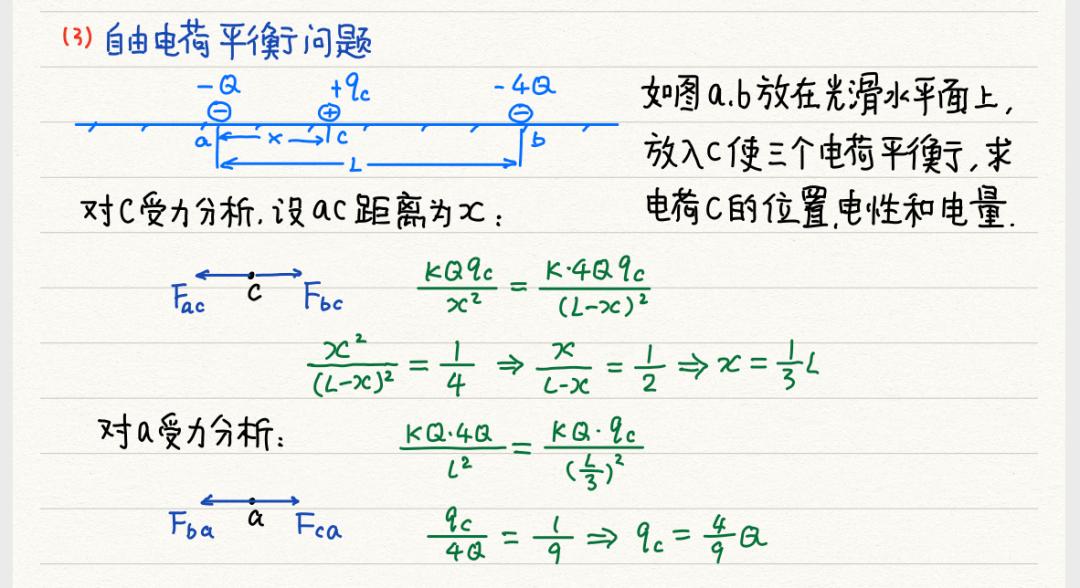 (3) 自由电荷平衡问题
-Q +qc -4Q
⊖ ⊕ ⊖
a x c b
L
如图a.b放在光滑水平面上,
放入C使三个电荷平衡,求
电荷C的位置,电性和电量.
对C受力分析.设ac距离为x:
Fac c Fbc
KQqc/x² = K·4Qqc/(L-x)²
x²/(L-x)² = 1/4 ⇒ x/(L-x) = 1/2 ⇒ x = 1/3 L
对a受力分析:
KQ·4Q/L² = KQ·qc/(L/3)²
Fba a Fca
qc/4Q = 1/9 ⇒ qc = 4/9 Q